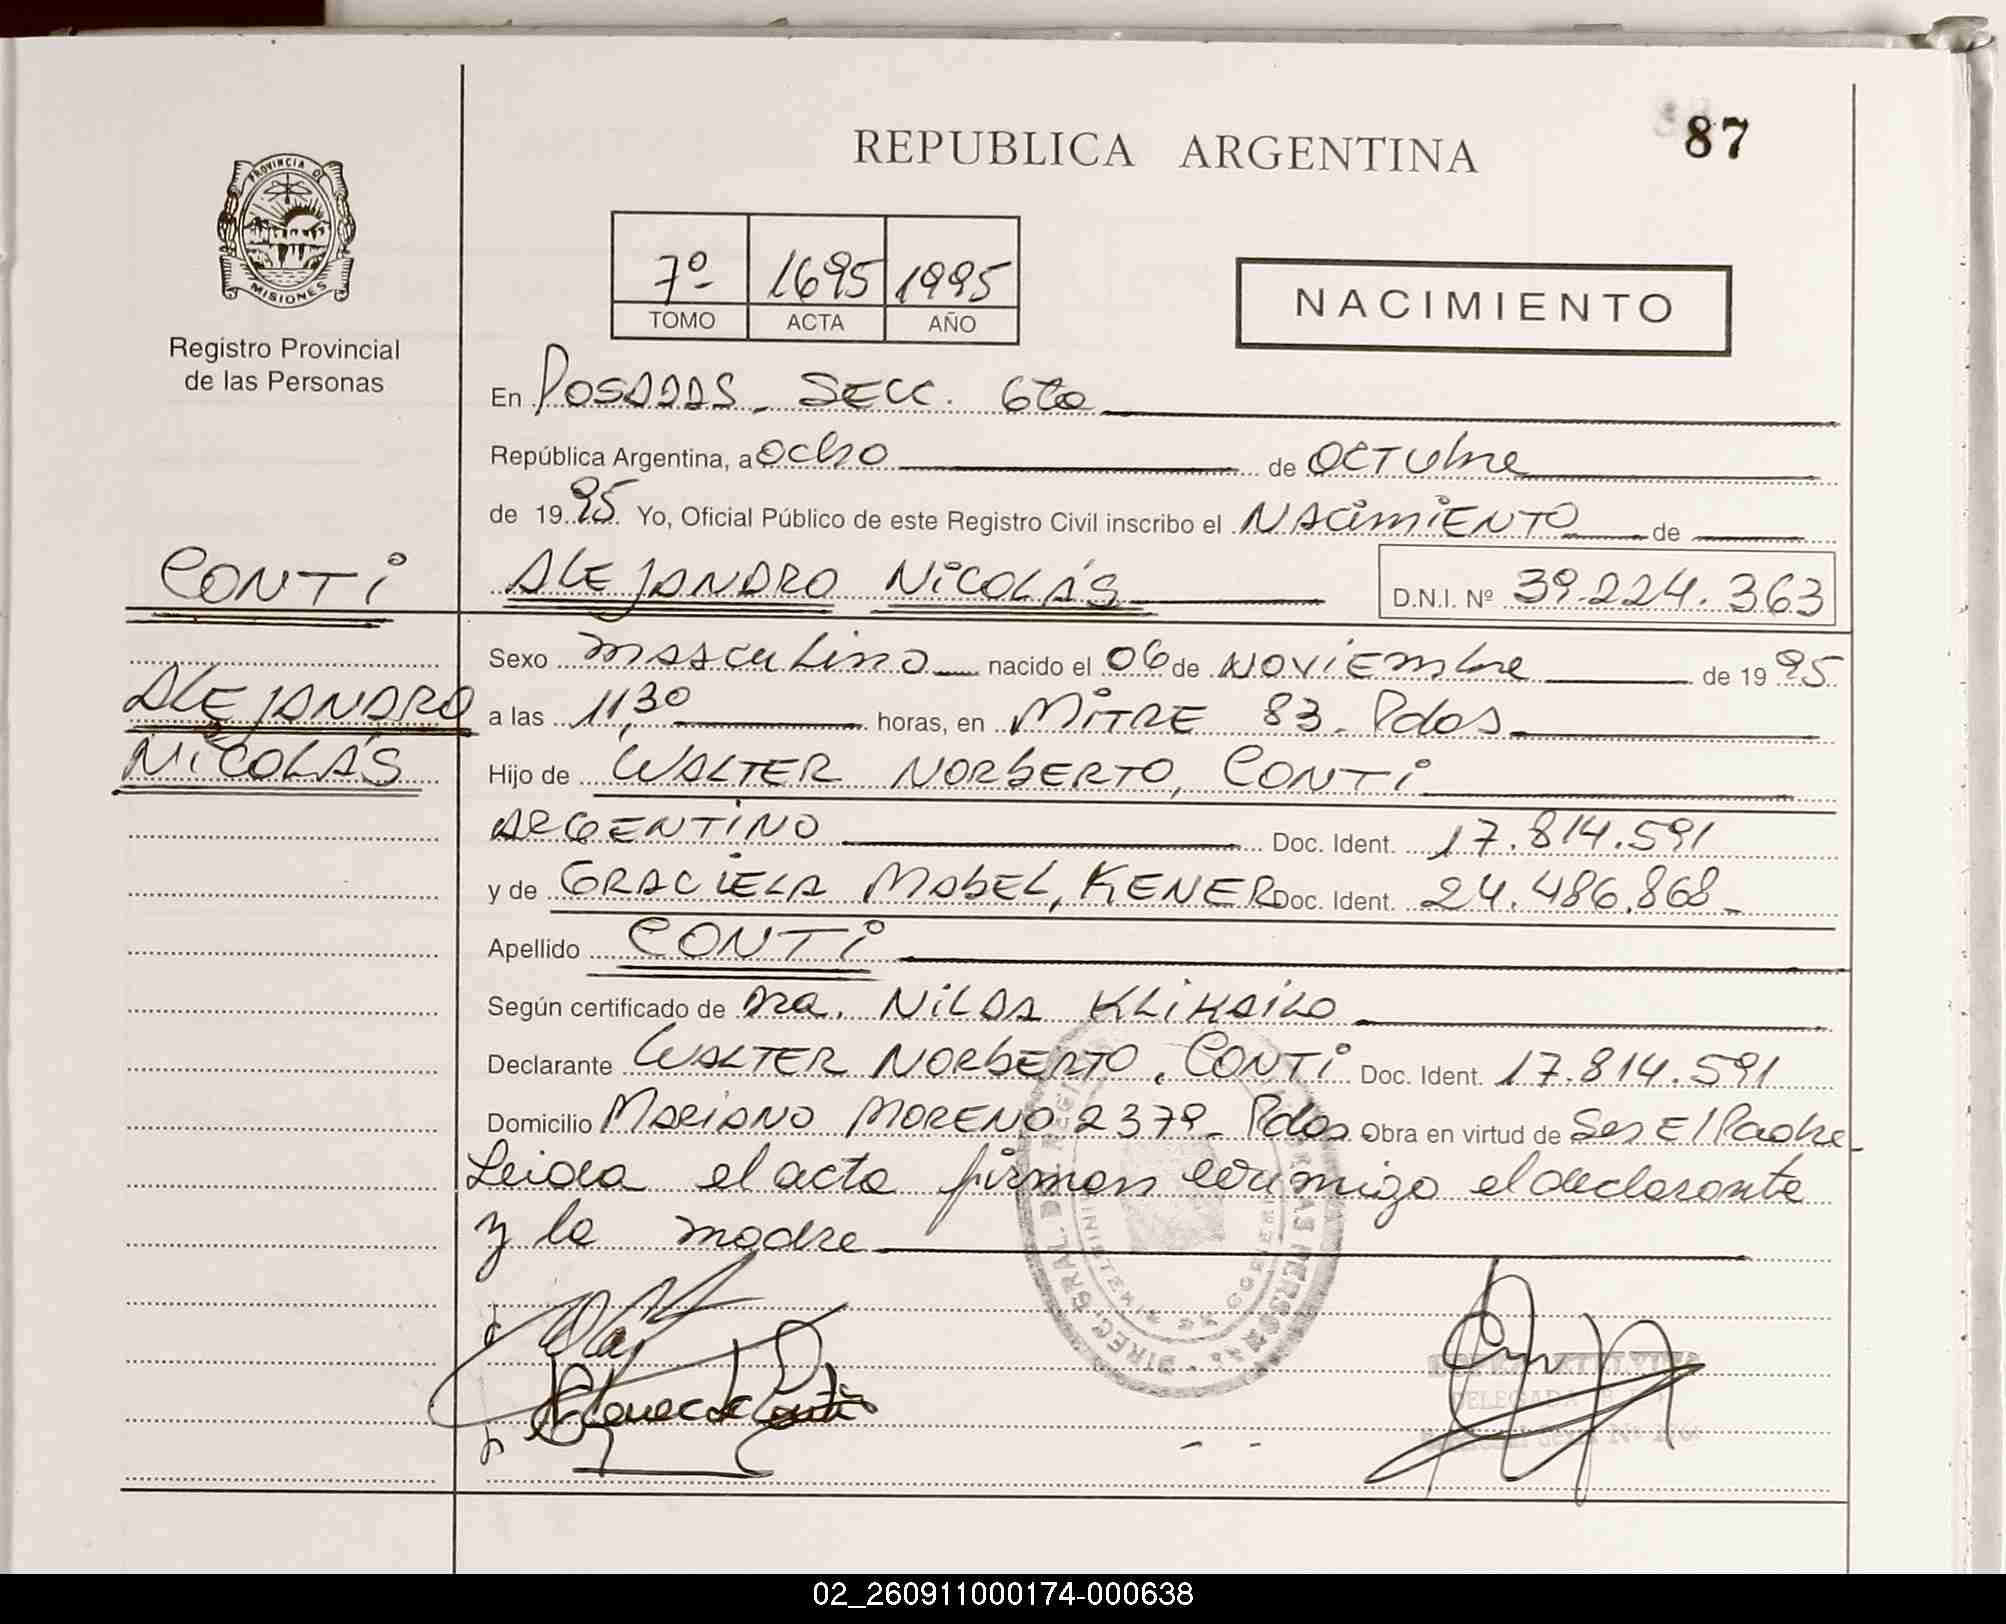 87
REPUBLICA ARGENTINA
PROVINCIA DE
MISIONES
Registro Provincial
de las Personas
7º 1695 1995
TOMO ACTA AÑO
NACIMIENTO
En POSADAS - SECC. 6ta
República Argentina, a ocho de OCTUbre
de 1995 Yo, Oficial Público de este Registro Civil inscribo el NACIMIENTO de
CONTI
ALEJANDRO NICOLÁS D.N.I. Nº 39.224.363
Sexo masculino nacido el 06 de NOVIEmbre de 1995
ALEJANDRO
a las 11,30 horas, en MITRE 83 - Pdas
NICOLÁS
Hijo de WALTER NORbERTO, CONTI
ARGENTINO Doc. Ident. 17.814.591
y de GRACIELA MAbEL, KENER Doc. Ident. 24.486.868-
Apellido CONTI
Según certificado de Dra. NILDA
Declarante WALTER NORbERTO, CONTI Doc. Ident. 17.814.591
Domicilio MARIANO MORENO 2379 - Pdas Obra en virtud de Ser El Padre-
Leida el acta firman conmigo el declarante
y la madre
DIREC. GRAL. DE REG. DE LAS PERSONAS
MINISTERIO DE GOBIERNO
DELEGADA
02_260911000174-000638